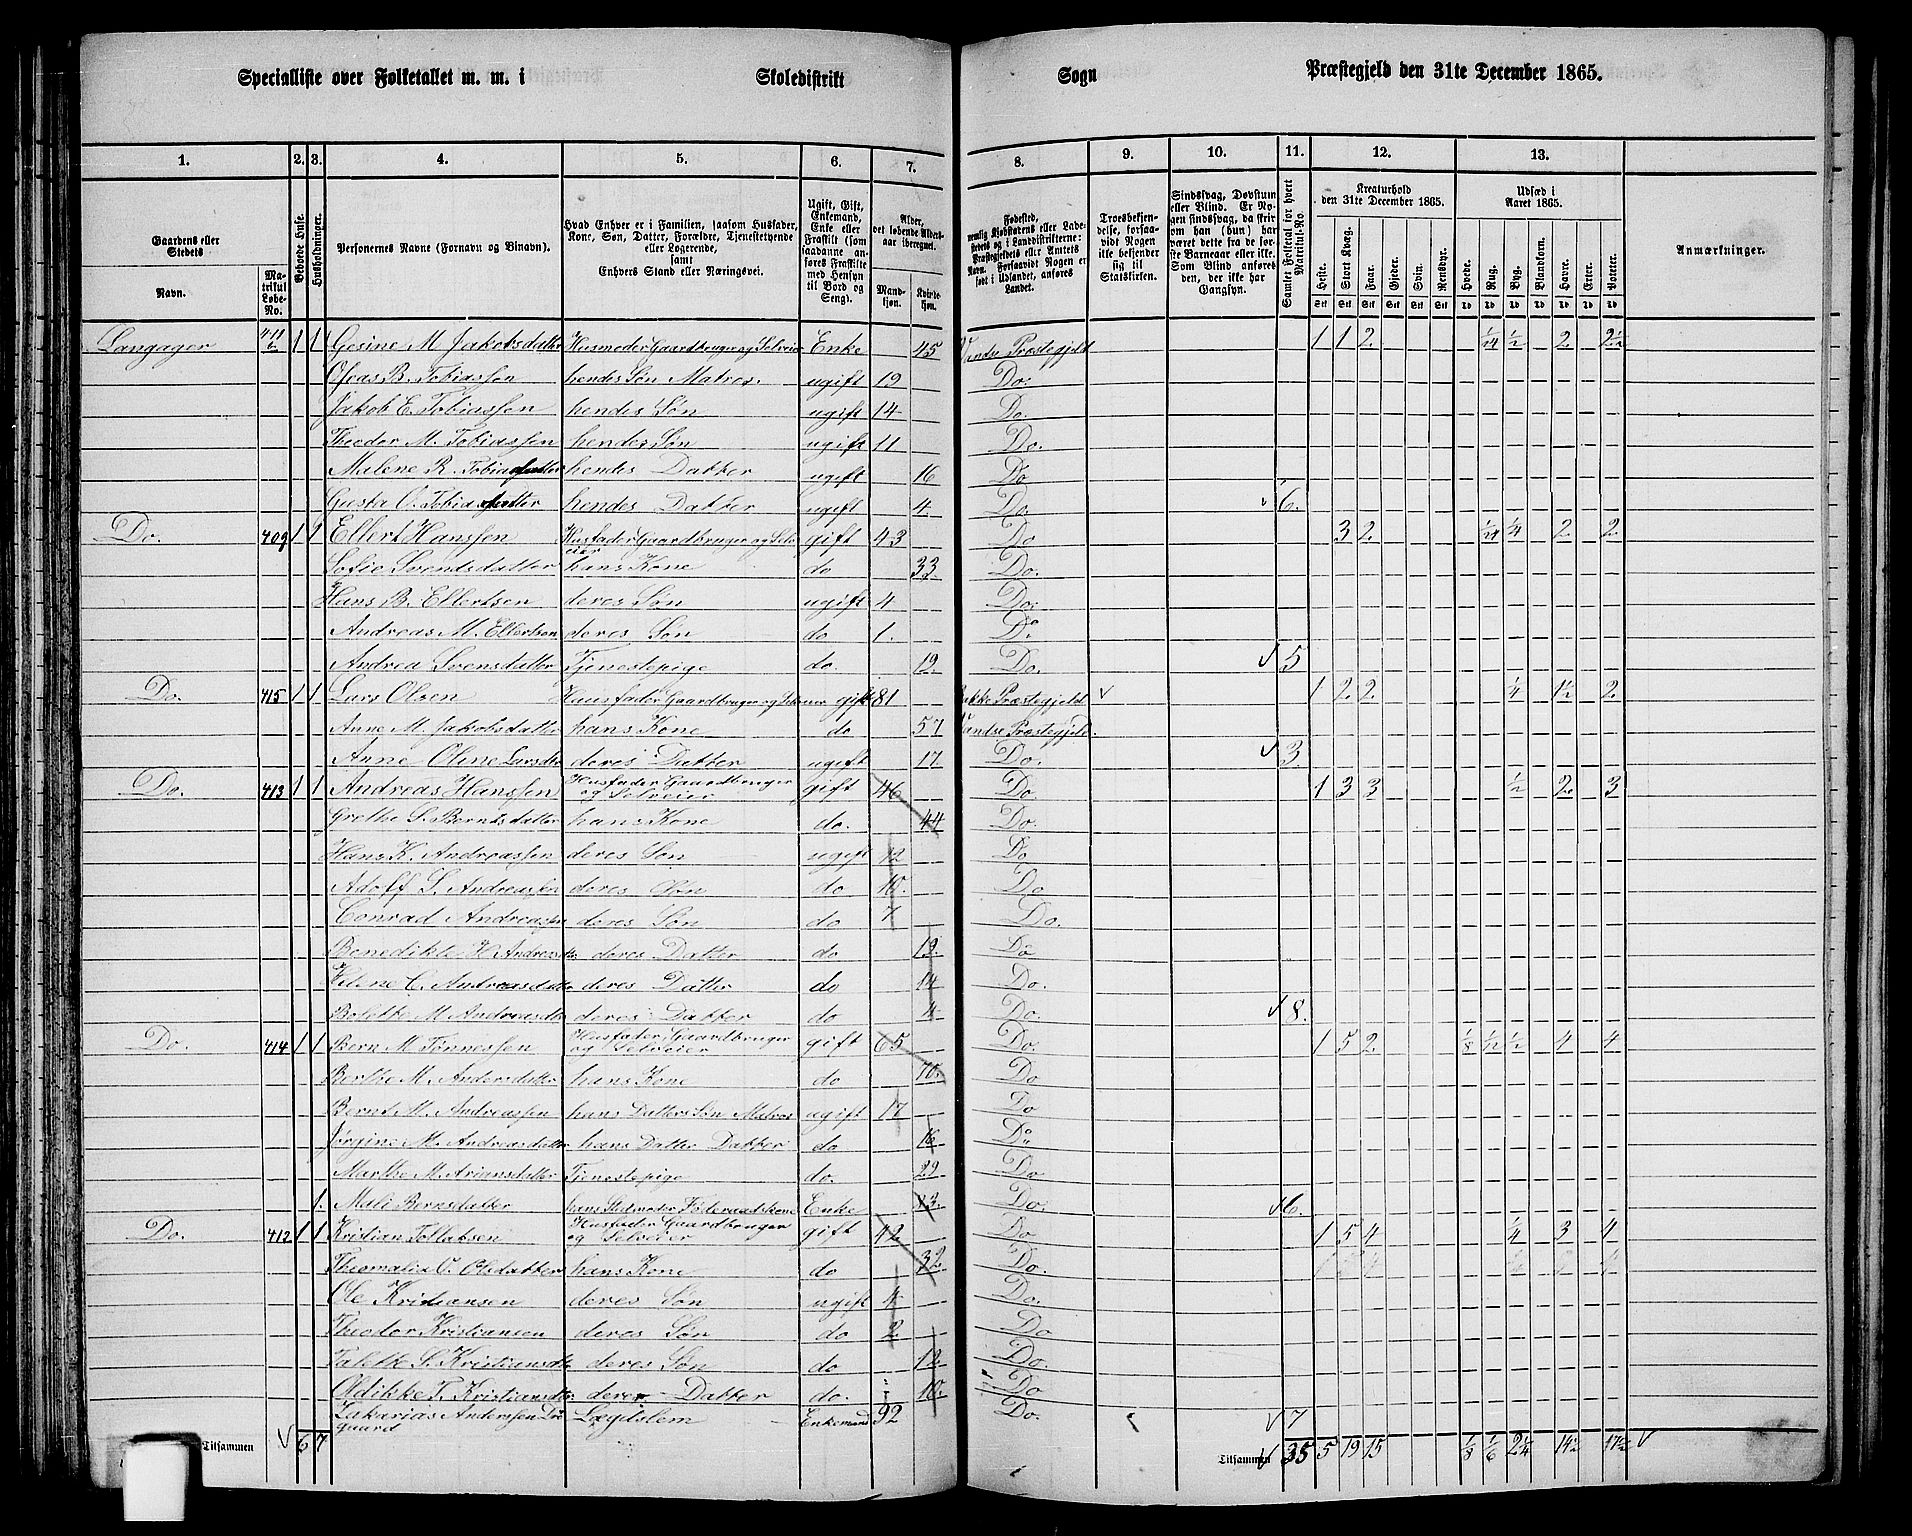 Specialliste over Folketallet m. m. i Skoledistrikt Sogn Præstegjeld den 31te December 1865.
1. 2. 3. 4. 5. 6. 7. 8. 9. 10. 11. 12. 13.
Gaardens eller Stedets Navn. Matrikul Løbe-No. Beboede Huse. Husholdninger. Personernes Navne (Fornavn og Binavn). Hvad Enhver er i Familien, saasom Husfader, Kone, Søn, Datter, Forældre, Tjenestetyende eller Logerende, samt Enhvers Stand eller Næringsvei. Ugift, Gift, Enkemand, Enke eller Fraskilt (som saadanne anføres Fraskilte med Hensyn til Bord og Seng). Alder, det løbende Aldersaar iberegnet. Mandkjøn. Kvindekjøn.
Troesbekjendelse, forsaavidt Nogen ikke bekjender sig til Statskirken. Sindssvag, Døvstum eller Blind. Samlet Folketal for hvert Matrikul-No. Kreaturhold den 31te December 1865. Udsæd i Aaret 1865. Anmærkninger.
Heste. Stort Kvæg. Faar. Gjeder. Svin. Rensdyr. Hvede. Rug. Byg. Blandkorn. Havre. Erter. Poteter.
Langager 411 b 1 1 Gesine M Jakobsdatter Husmoder Gaardbruger og Selveier Enke 45 Vandse Præstegjeld 1 1 2 1/24 1/2 2 2 1/2
Oseas B. Tobiassen hendes Søn Matros. ugift 19 Do.
Jakob E. Tobiassen hendes Søn ugift 14 Do.
Theodor M. Tobiassen hendes Søn ugift 11 Do.
Malene R. Tobiasdatter hendes Datter ugift 16 Do
Gusta O. Tobiasdatter hendes Datter ugift 4. Do. 6.
Do. 409 1 1 Ellert Hanssen Husfader Gaardbruger og Selveier gift 43 Do 3 2 1/24 1/4 2 2
Sofie Svendsdatter hans Kone do 33 Do.
Hans B. Ellertsen deres Søn ugift 4 Do.
Andreas M. Ellertsen deres Søn do 1. Do
Andrea Svensdatter Tjenestepige do. 19 Do. 5
Do. 415 1 1 Lars Olsen Huusfader Gaardbruger og Selveier gift 81 Bakke Præstegjeld 1 2 2 1/4 1 1/2 2
Anne M. Jakobsdatter hans Kone do 57 Vandse Præstegjeld.
Anne Oline Larsdtr deres Datter ugift 17 Do. 3
Do. 413 1 1 Andreas Hanssen Husfader Gaardbruger og Selveier gift 46 Do 1 3 3 1/2 2 3
Grethe S. Berntsdatter hans Kone do. 44 Do.
Hans K. Andreassen deres Søn ugift 12 Do
Adolf S. Andreassen deres Søn do 10. Do
Conrad Andreassen deres Søn do 7 Do.
Benedikte H. Andreasdtr deres Datter do 19. Do
Helene C. Andreasdatter deres Datter do 14 Do.
Bolette M. Andreasdtr deres Datter do 4 Do. 8.
Do. 414 1 1 Bern M. Tønnessen Husfader, Gaardbruger og Selveier gift 65 Do. 1 5 2 1/8 1/12 1/2 4 4
Berthe M. Andersdatter hans Kone do 70. Do
Bernt M. Andreassen hans Datters Søn Matros ugift 17 Do
Jørgine M. Andreasdatter hans Datter Datter do 16 Do
Marthe M. Ariansdatter Tjenestepige do. 29 Do
1. Mali Bernsdatter hans Stedmoder Føderaadskone Enke Do. 6.
Do. 412 1 1 Kristian Tollaksen Husfader Gaardbruger og Selveier gift 42 Do 1 5 4 1/4 3 4
Thomalia O. Olsdatter hans Kone do 32 Do.
Ole Kristiansen deres Søn ugift 4 Do.
Theodor Kristiansen deres Søn do 2 Do
Talette S. Kristiansdtr deres Søn do 12. Do.
Oldikke T. Kristiansdtr. deres Datter do. 10. Do
Zakarias Anderssen Løgaard Lægdslem Enkemand 92 Do. 7
Tilsammen 6 7 Tilsammen 35 5 19 15 1/8 1/6 2 1/4 14 1/2 17 1/2